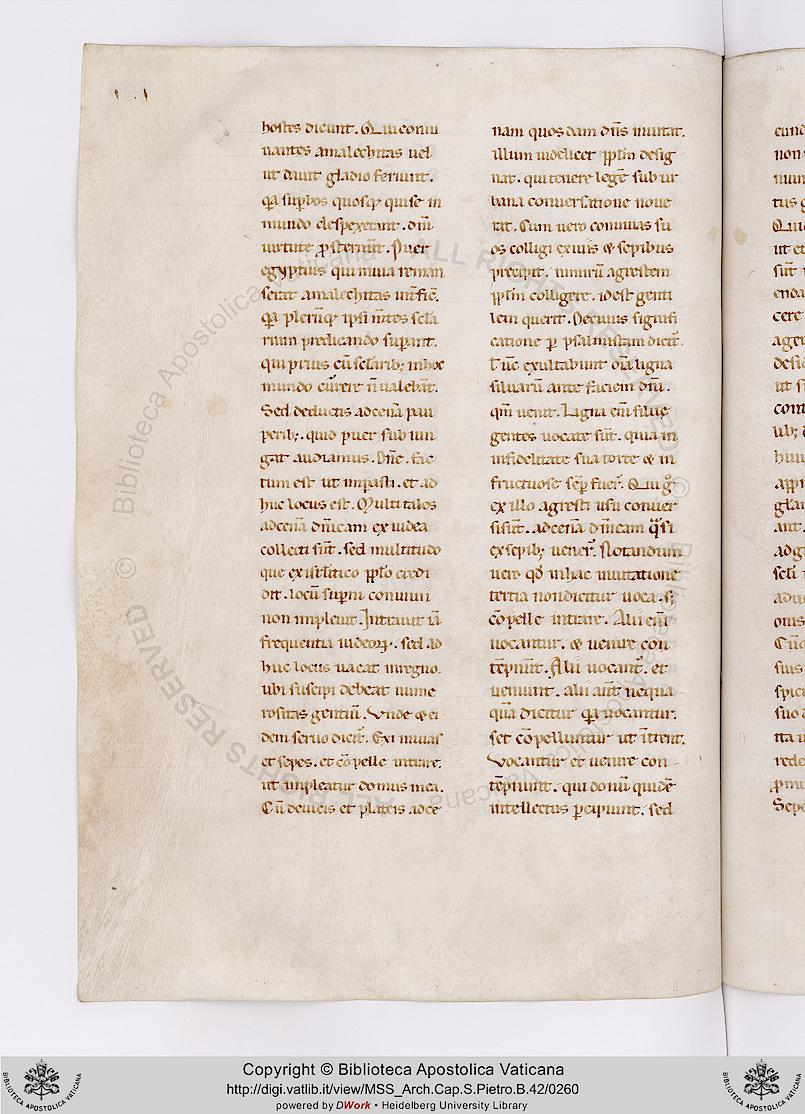 hostes dicunt. Qui conui
uantes amalechitas uel
ut dauit gladio feriunt.
q̄a sup̄bos quosq; qui se in
mundo despexerant. dn̄i
uirtute p̄sternūt. Puer
egyptius qui in uia reman
serat amalechitas int̄ficē.
q̄a plerūq; ipsi m̄tes sc̄la
rium predicando sup̄ant.
qui prius cū sc̄larib; in hoc
mundo cur̄ere n̄ ualebāt.
Sed deductis ad cenā pau
perib;. quid puer sub iun
gat audiamus. Dn̄e. fac
tum est ut impasti. et ad
huc locus est. Multi tales
ad cenā dn̄icam ex iudea
collecti sūt. sed multitudo
que ex isr̄litico pp̄lo credi
dit. locū sup̄ni conuiuii
non impleuit. Intrauit iā
frequentia iudeoꝝ. sed ad
huc locus uacat in regno.
ubi suscipi debeat nume
rositas gentiū. Vnde & ei
dem seruo dicit̄. Exi in uias
et sepes. et cōpelle intrare.
ut impleatur domus mea.
Cū de uicis et plateis ad ce
nam quosdam dn̄s inuitat.
illum uidelicet pp̄lm desig
nat. qui tenere legē sub ur
bana conuersatione noue
rat. Cum uero conuiuas su
os colligi ex uiis & sepibus
precipit. nimirū agrestem
pp̄lm colligere. id est genti
lem querit. De cuius signifi
catione p̄ psalmistam dicit̄.
T̄ūc exultabunt om̄a ligna
siluarū ante faciem dn̄i.
qm̄ uenit. Ligna em̄ silue
gentes uocate sūt. quia in
infidelitate sua torte & in
fructuose semp̄ fuer̄. Qui ḡ
ex illo agresti usu conuer
si sūt. ad cenā dn̄icam q̄si
ex sepib; uener̄. Notandum
uero qd̄ in hac inuitatione
tertia non dicitur uoca. s;
cōpelle intrare. Alii em̄
uocantur. & uenire con
tēpnūt. Alii uocant̄. et
ueniunt. alii aūt nequa
quā dicitur q̄a uocantur.
set cōpelluntur ut īntrent.
Vocantur et uenire con
tēpnunt. qui donū quidē
intellectus p̄cipiunt. sed
Copyright © Biblioteca Apostolica Vaticana
http://digi.vatlib.it/view/MSS_Arch.Cap.S.Pietro.B.42/0260
powered by DWork • Heidelberg University Library